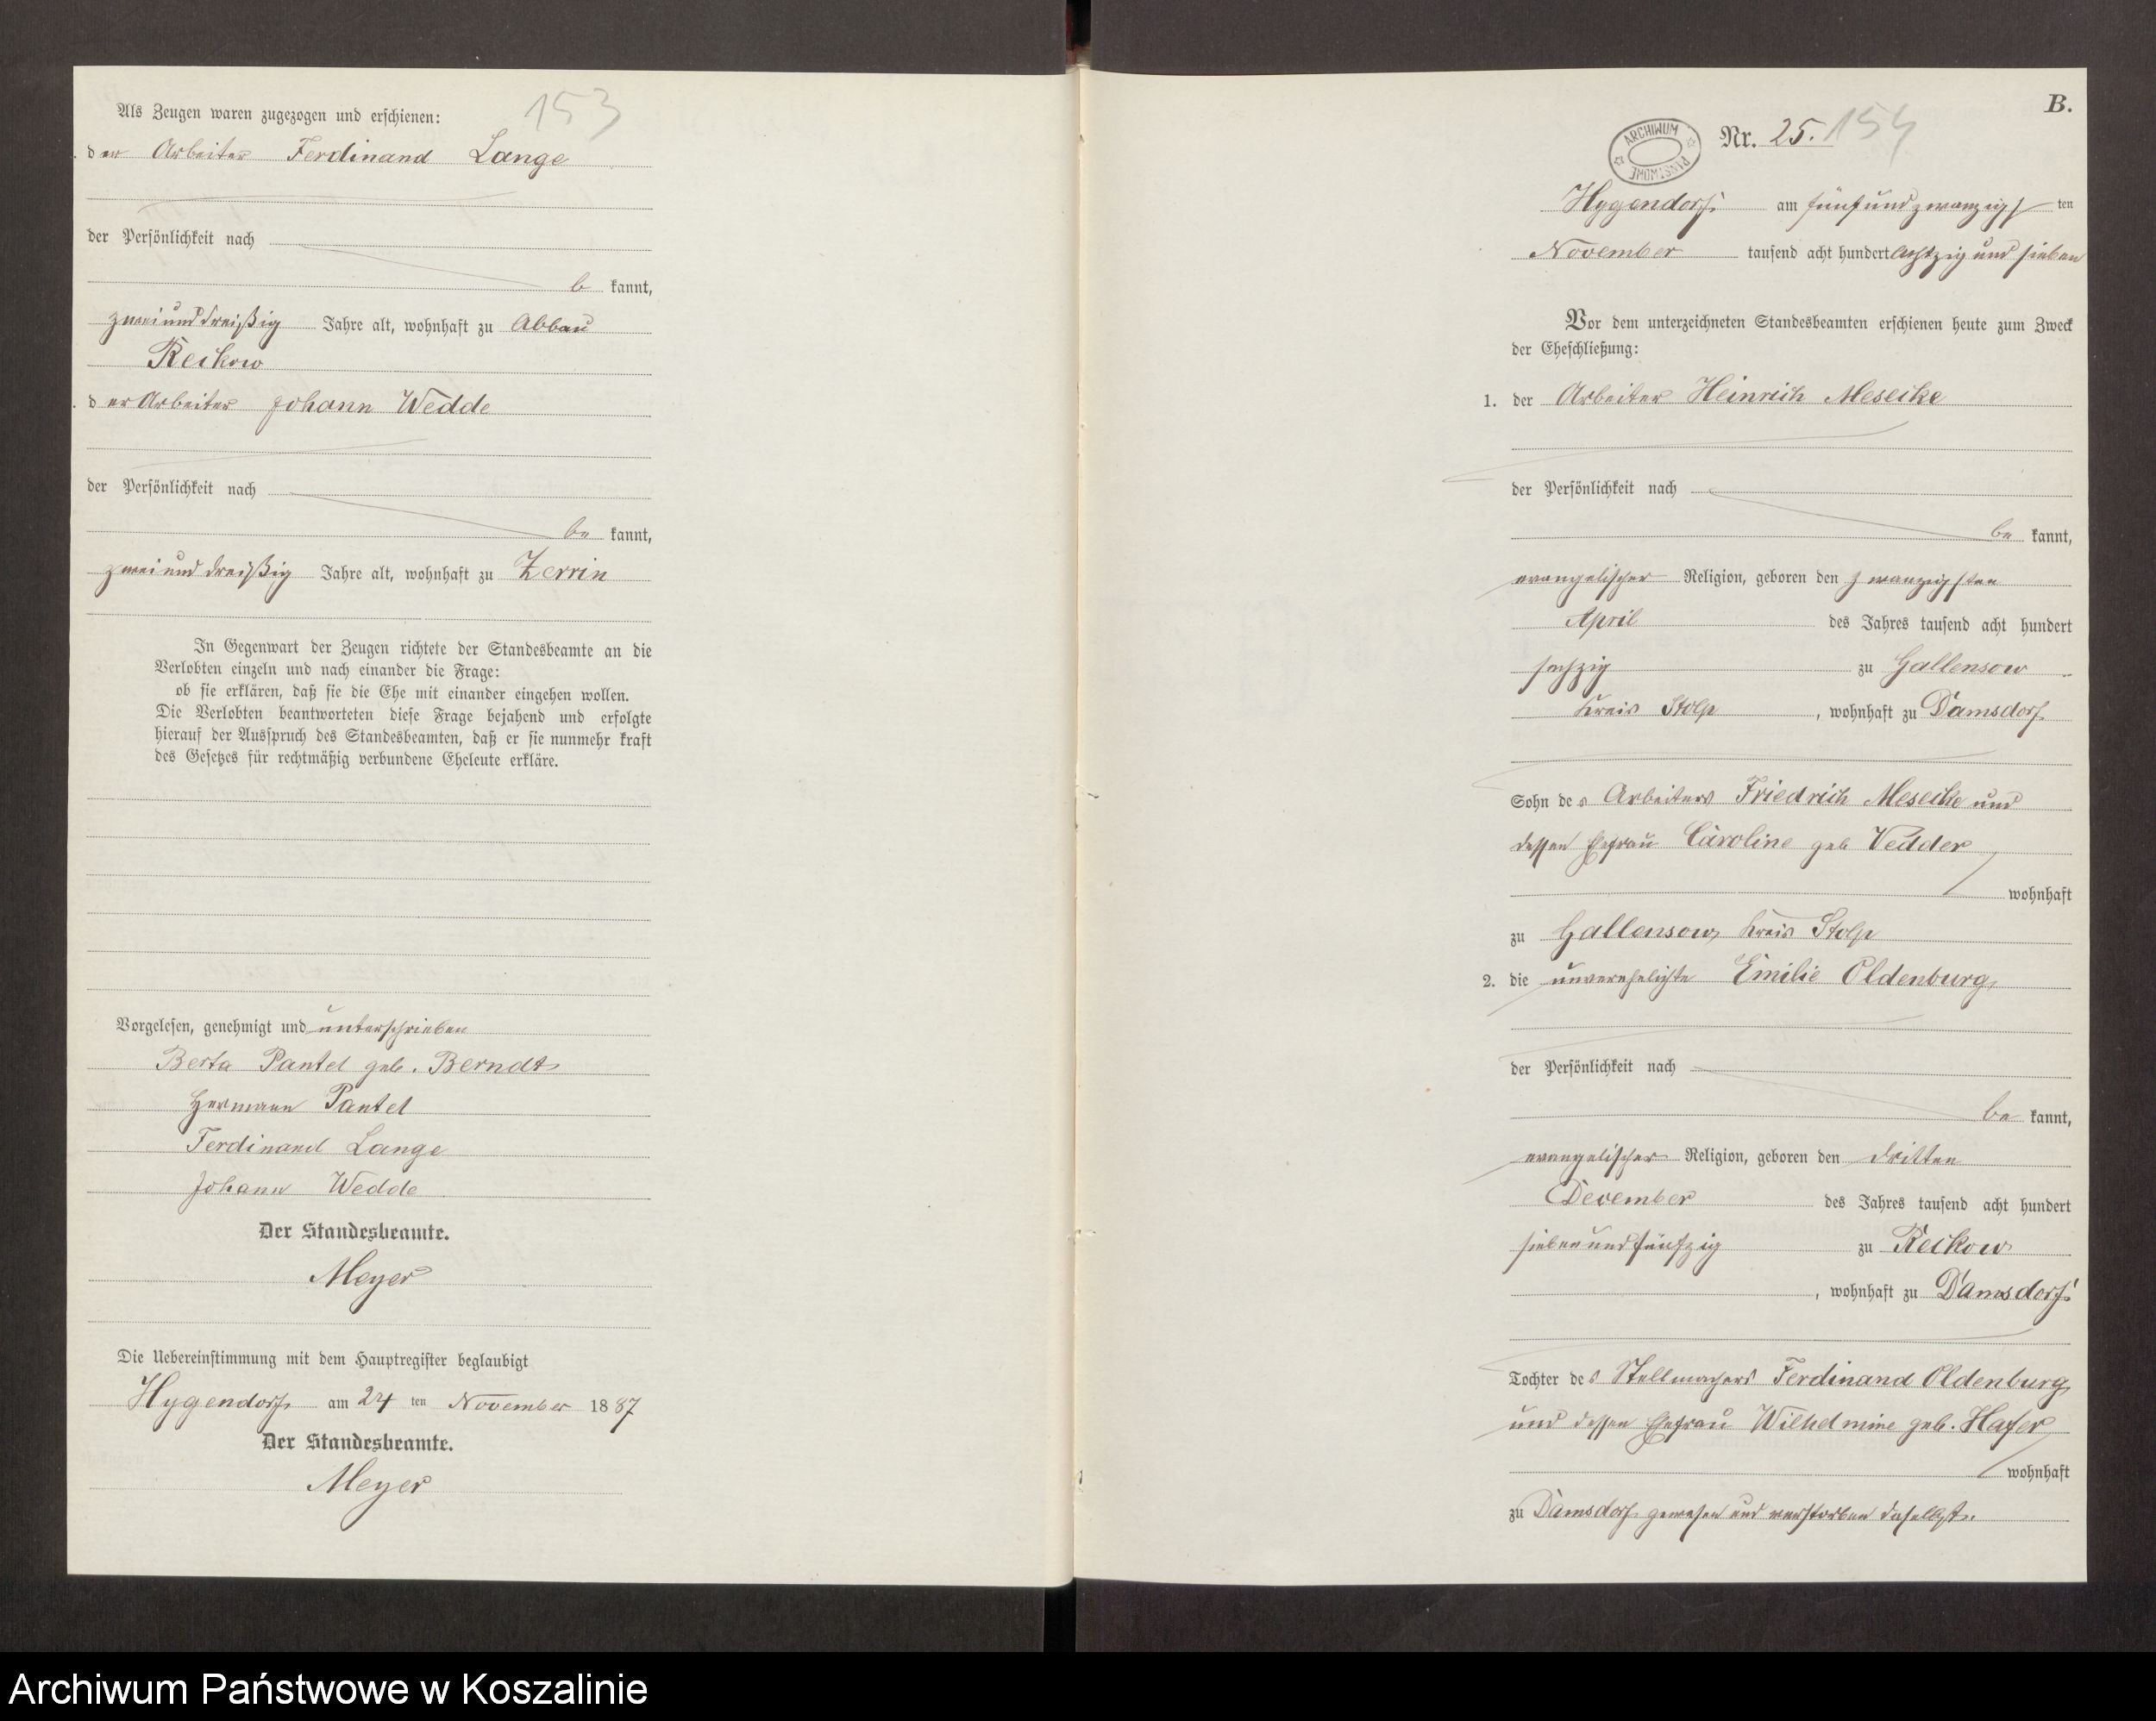 153
Als Zeugen waren zugezogen und erschienen:
der Arbeiter Ferdinand Lange
der Persönlichkeit nach
be kannt,
zweiunddreißig Jahre alt, wohnhaft zu Abbau
Reckow
der Arbeiter Johann Wedde
der Persönlichkeit nach
be kannt,
zweiunddreißig Jahre alt, wohnhaft zu Zerrin
In Gegenwart der Zeugen richtete der Standesbeamte an die
Verlobten einzeln und nach einander die Frage:
ob sie erklären, daß sie die Ehe mit einander eingehen wollen.
Die Verlobten beantworteten diese Frage bejahend und erfolgte
hierauf der Ausspruch des Standesbeamten, daß er sie nunmehr kraft
des Gesetzes für rechtmäßig verbundene Eheleute erkläre.
Vorgelesen, genehmigt und unterschrieben
Berta Pantel geb. Berndt
Hermann Pantel
Ferdinand Lange
Johann Wedde
Der Standesbeamte.
Meyer
Die Uebereinstimmung mit dem Hauptregister beglaubigt
Hygendorf, am 24 ten November 1887
Der Standesbeamte.
Meyer
B.
ARCHIWUM PAŃSTWOWE
Nr. 25. 154
Hygendorf am fünfundzwanzigs ten
November tausend acht hundert achtzig und sieben
Vor dem unterzeichneten Standesbeamten erschienen heute zum Zweck
der Eheschließung:
1. der Arbeiter Heinrich Meseike
der Persönlichkeit nach
be kannt,
evangelischer Religion, geboren den zwanzigsten
April des Jahres tausend acht hundert
sechzig zu Gallensow
Kreis Stolp, wohnhaft zu Damsdorf
Sohn des Arbeiters Friedrich Meseike und
dessen Ehefrau Caroline geb Vedder
wohnhaft
zu Gallensow, Kreis Stolp
2. die unverehelichte Emilie Oldenburg,
der Persönlichkeit nach
be kannt,
evangelischer Religion, geboren den dritten
December des Jahres tausend acht hundert
siebenundfünfzig zu Reckow
, wohnhaft zu Damsdorf
Tochter des Stellmachers Ferdinand Oldenburg
und dessen Ehefrau Wilhelmine geb. Hafer
wohnhaft
zu Damsdorf gewesen und verstorben daselbst.
Archiwum Państwowe w Koszalinie